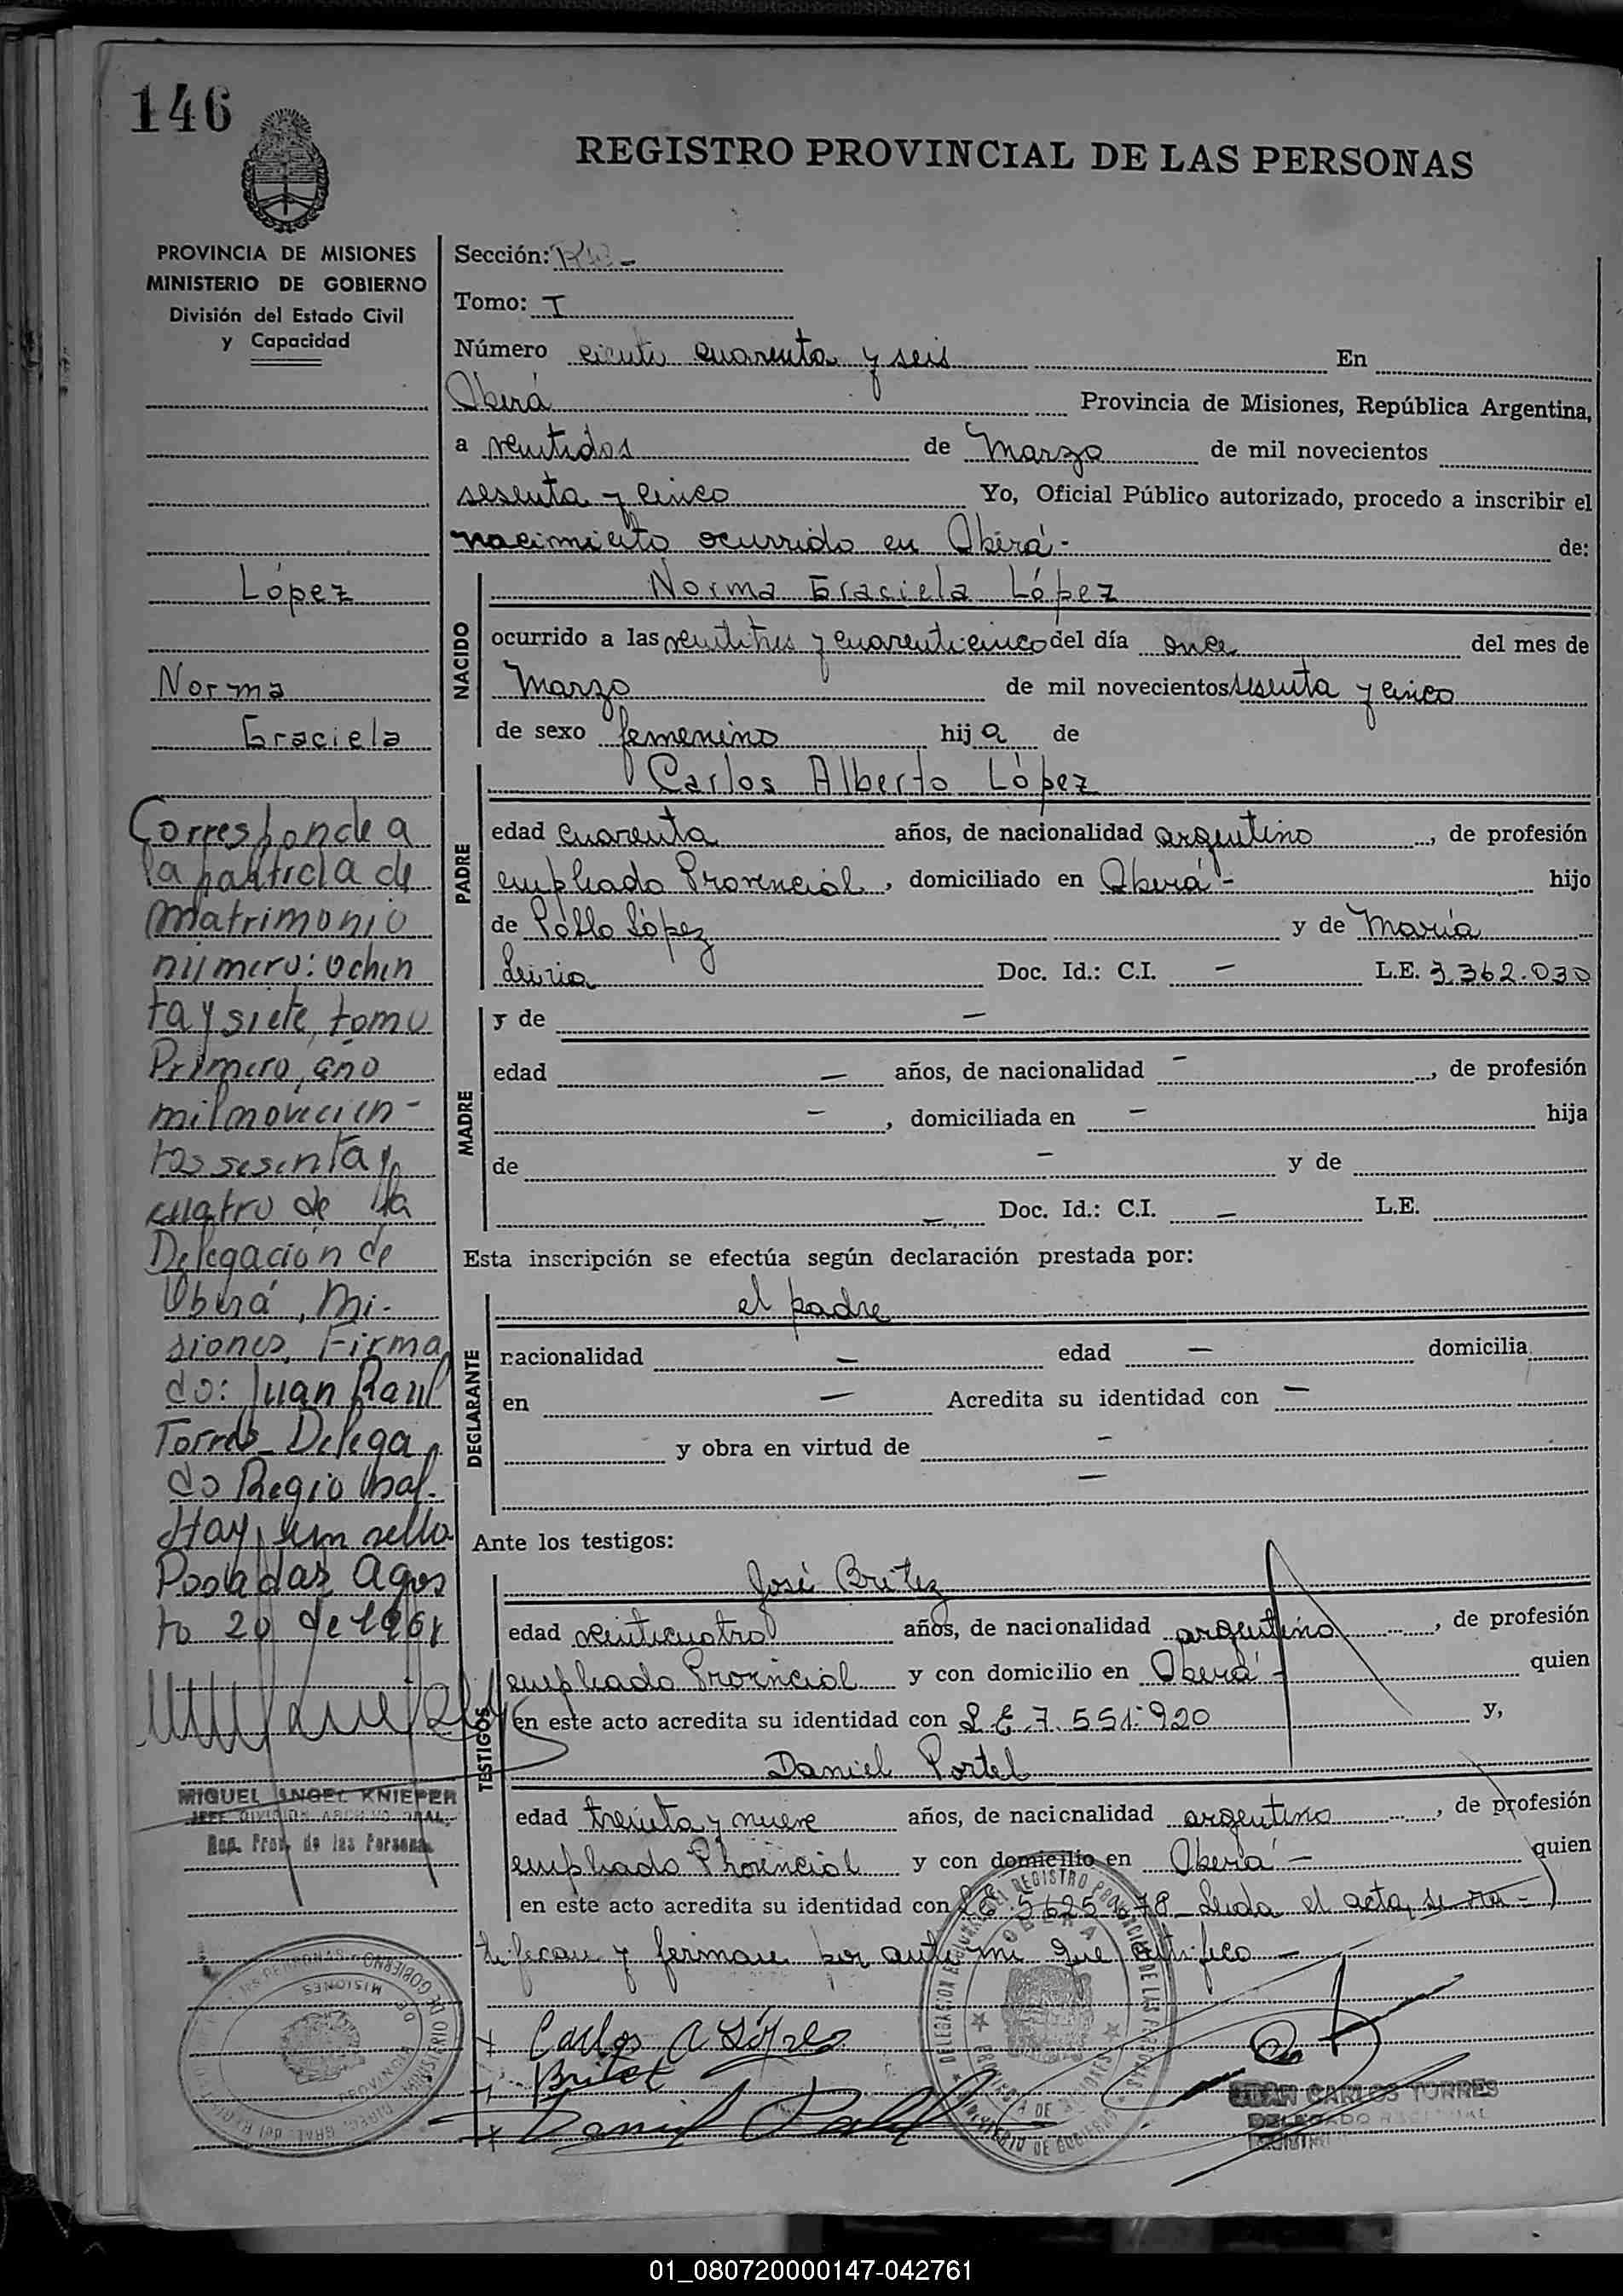 146
REGISTRO PROVINCIAL DE LAS PERSONAS
PROVINCIA DE MISIONES
MINISTERIO DE GOBIERNO
División del Estado Civil
y Capacidad
López
Norma
Graciela
Corresponde a
la partida de
matrimonio
número: ochen
ta y siete, tomo
Primero, año
mil novecien-
tos sesenta y
cuatro de la
Delegación de
Oberá, Mi-
siones, Firma
do: Juan Raul
Torres Delega
do Regional.
Hay un sello
Posadas Agos
to 20 de
MIGUEL ANGEL KNIEPER
JEFE DIVISION ARCHIVO GRAL.
Reg. Prov. de las Personas
Sección:
Tomo: I
Número ciento cuarenta y seis En
Oberá Provincia de Misiones, República Argentina,
a veintidos de Marzo de mil novecientos
sesenta y cinco Yo, Oficial Público autorizado, procedo a inscribir el
nacimiento ocurrido en Oberá - de:
NACIDO
Norma Graciela López
ocurrido a las veintitres y cuarenticinco del día once del mes de
Marzo de mil novecientos sesenta y cinco
de sexo femenino hija de
PADRE
Carlos Alberto López
edad cuarenta años, de nacionalidad argentino, de profesión
empleado Provincial, domiciliado en Oberá - hijo
de Pablo López y de María
Doc. Id.: C.I. - L.E. 3.362.030
MADRE
y de -
edad - años, de nacionalidad -, de profesión
-, domiciliada en - hija
de - y de
- Doc. Id.: C.I. - L.E.
Esta inscripción se efectúa según declaración prestada por:
DECLARANTE
el padre
nacionalidad - edad - domicilia
en - Acredita su identidad con -
y obra en virtud de -
-
Ante los testigos:
TESTIGOS
José Britez
edad veinticuatro años, de nacionalidad argentino, de profesión
empleado Provincial y con domicilio en Oberá - quien
en este acto acredita su identidad con L.E. 7.551.920 y,
Daniel Portel
edad treinta y nueve años, de nacionalidad argentino, de profesión
empleado Provincial y con domicilio en Oberá - quien
en este acto acredita su identidad con L.E. Leida el acta, se ra-
tifican y firman por ante mi que certifico -
Carlos A López
Britez
Daniel
CARLOS TORRES
DELEGADO
01_080720000147-042761